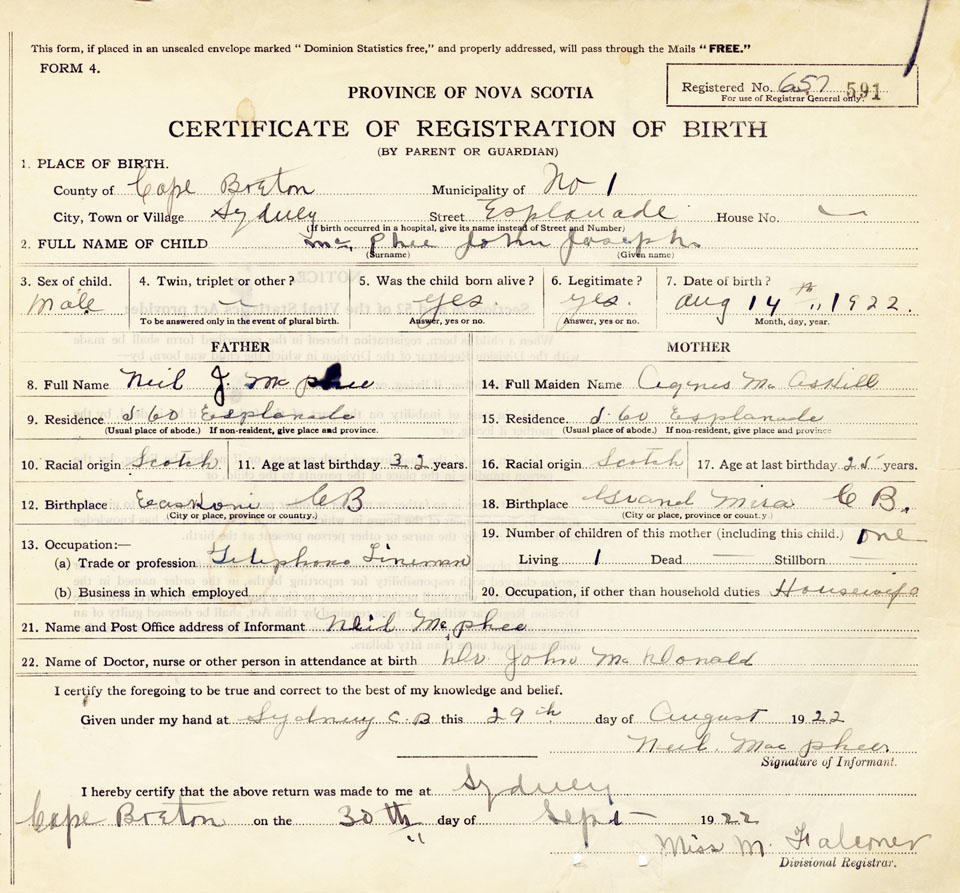 This form, if placed in an unsealed envelope marked "Dominion Statistics free," and properly addressed, will pass through the Mails "FREE."
FORM 4.
Registered No. 657 591
For use of Registrar General only.
PROVINCE OF NOVA SCOTIA
CERTIFICATE OF REGISTRATION OF BIRTH
(BY PARENT OR GUARDIAN)
1. PLACE OF BIRTH.
County of Cape Breton Municipality of No 1
City, Town or Village Sydney Street Esplanade House No. —
(If birth occurred in a hospital, give its name instead of Street and Number)
2. FULL NAME OF CHILD Mc Phee John Joseph
(Surname) (Given name)
3. Sex of child. 4. Twin, triplet or other? 5. Was the child born alive? 6. Legitimate? 7. Date of birth?
Male — yes. yes. Aug 14th 1922.
To be answered only in the event of plural birth. Answer, yes or no. Answer, yes or no. Month, day, year.
FATHER MOTHER
8. Full Name Neil J. Mc Phee 14. Full Maiden Name Agnes Mc Askill
9. Residence 560 Esplanade 15. Residence 560 Esplanade
(Usual place of abode.) If non-resident, give place and province. (Usual place of abode.) If non-resident, give place and province
10. Racial origin Scotch 11. Age at last birthday 32 years. 16. Racial origin Scotch 17. Age at last birthday 25 years.
12. Birthplace Easkoni C B 18. Birthplace Grand Mira C B.
(City or place, province or country.) (City or place, province or country.)
13. Occupation:— 19. Number of children of this mother (including this child.) one
(a) Trade or profession Telephone Lineman Living 1 Dead — Stillborn
(b) Business in which employed 20. Occupation, if other than household duties Housewife
21. Name and Post Office address of Informant Neil Mc phee
22. Name of Doctor, nurse or other person in attendance at birth Dr John Mc Donald
I certify the foregoing to be true and correct to the best of my knowledge and belief.
Given under my hand at Sydney C.B this 29th day of August 1922
Neil Mac phee
Signature of Informant.
I hereby certify that the above return was made to me at Sydney
Cape Breton on the 30th day of Sept 1922
Miss M. Falconer
Divisional Registrar.